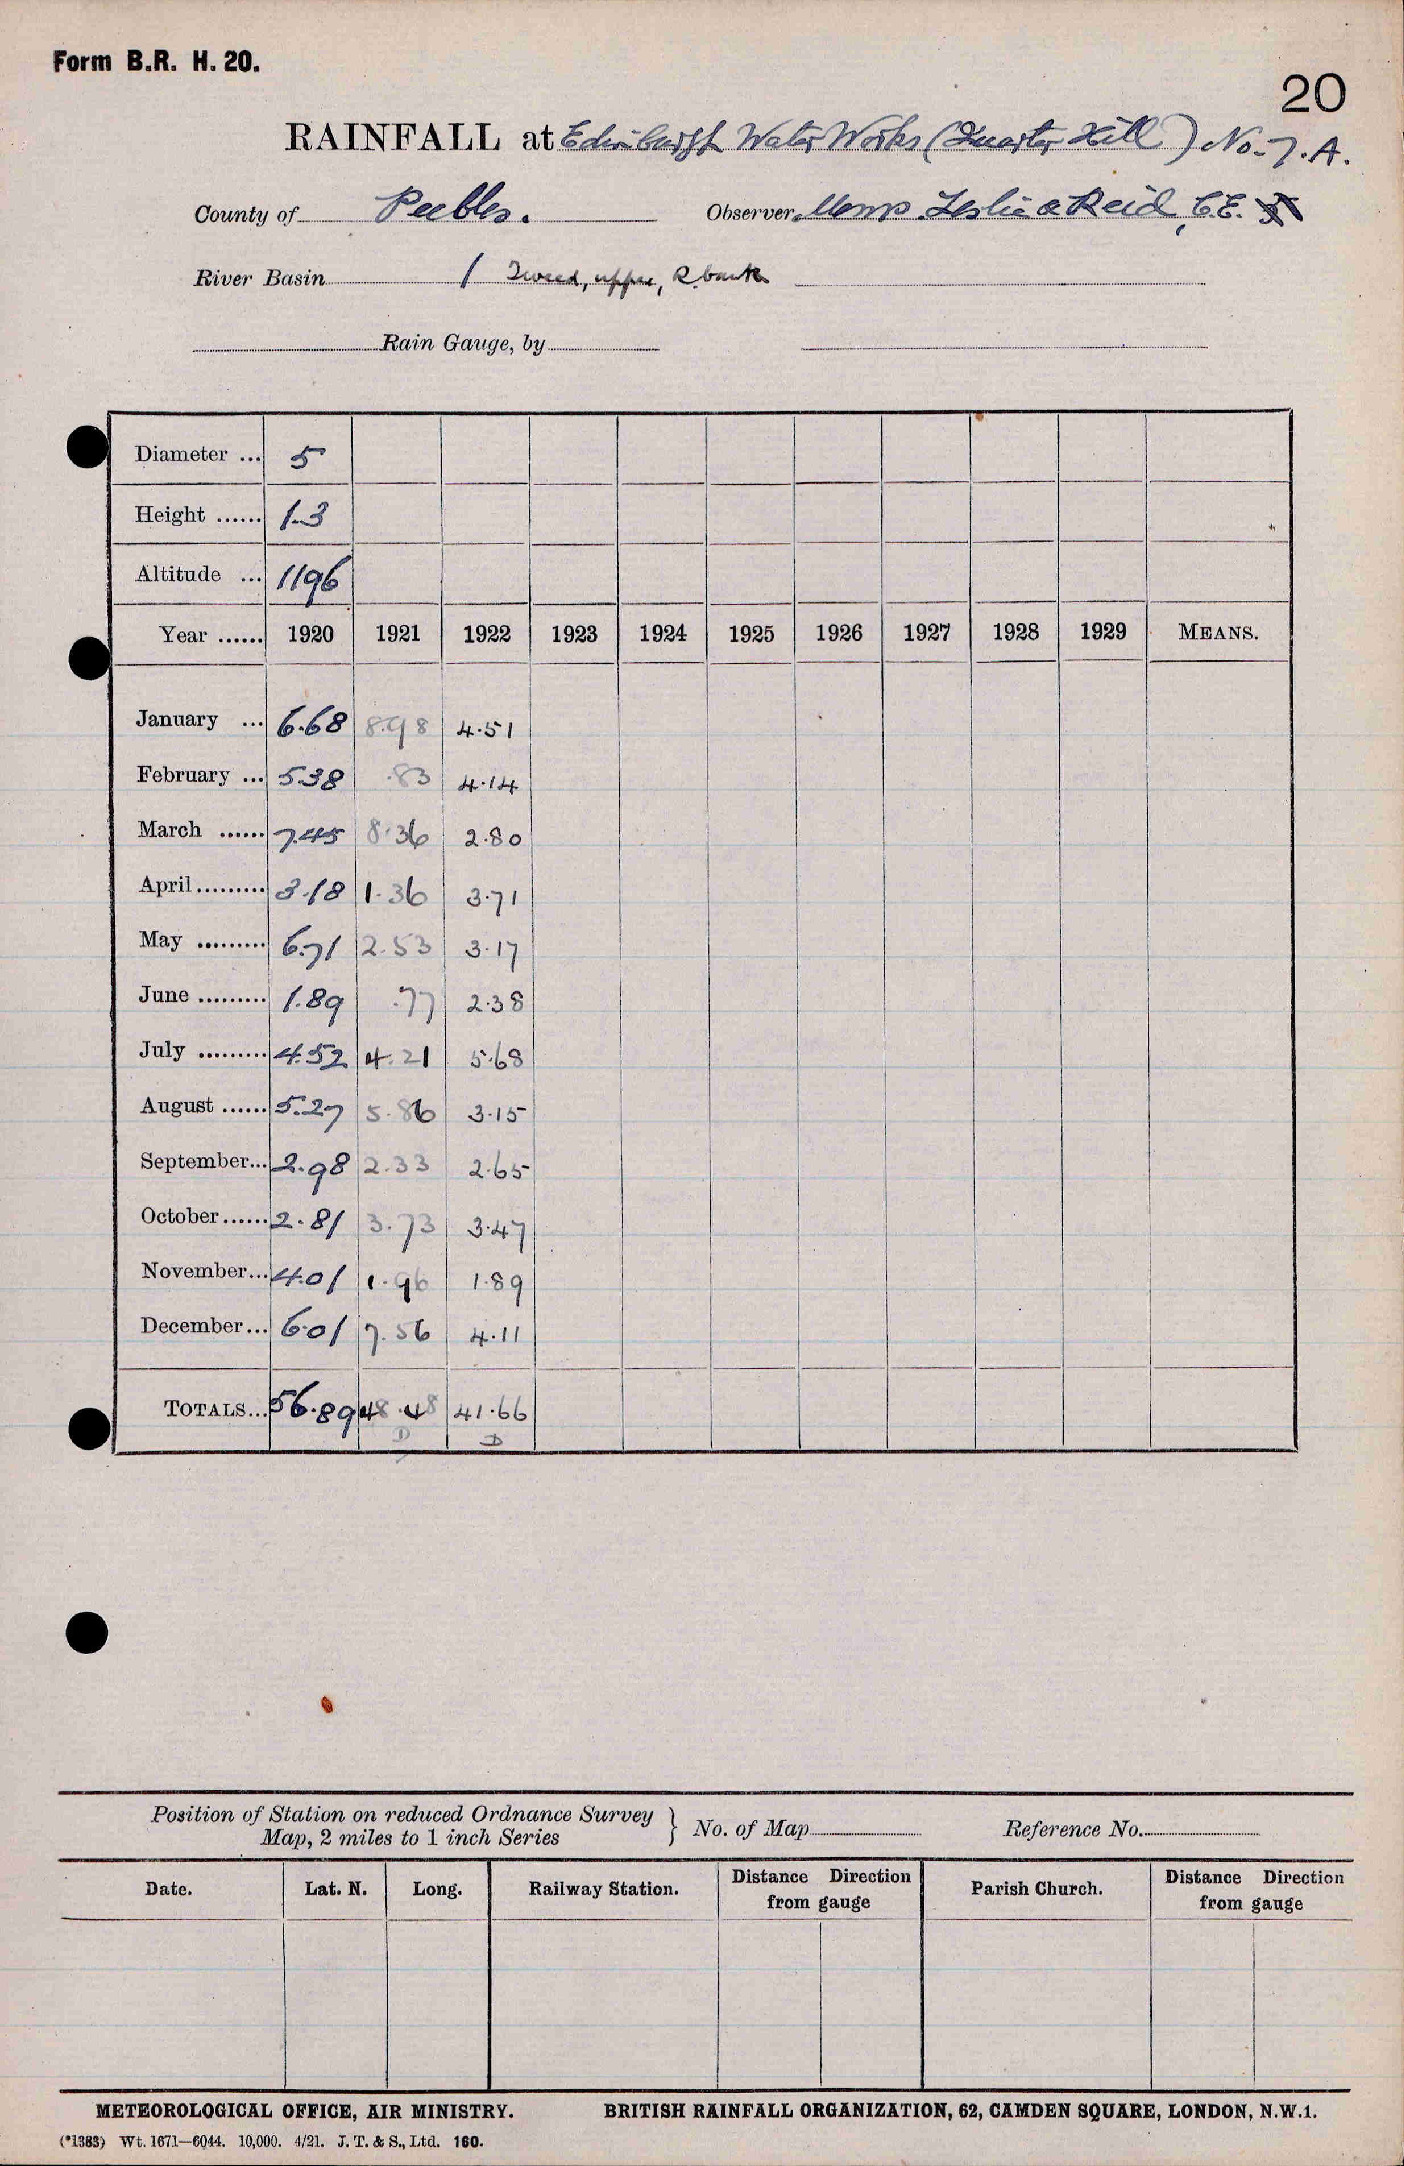 Form B.R. H. 20.
20
RAINFALL at Edinburgh Water Works (Quarter Hill) No. 7. A.
County of Peebles. Observer Messrs. Leslie & Reid, C.E.
River Basin 1 Tweed, upper, R. bank
Rain Gauge, by
Diameter ... 5
Height ...... 1.3
Altitude ... 1196
Year ...... 1920 1921 1922 1923 1924 1925 1926 1927 1928 1929 MEANS.
January ... 6.68 8.98 4.51
February ... 5.38 .83 4.14
March ...... 7.45 8.36 2.80
April ......... 3.18 1.36 3.71
May ......... 6.71 2.53 3.17
June ......... 1.89 .77 2.38
July ......... 4.52 4.21 5.68
August ...... 5.27 5.86 3.15
September... 2.98 2.33 2.65
October ...... 2.81 3.73 3.47
November... 4.01 1.96 1.89
December... 6.01 7.56 4.11
TOTALS... 56.89 48.48 41.66
D D
Position of Station on reduced Ordnance Survey
Map, 2 miles to 1 inch Series } No. of Map Reference No.
Date. Lat. N. Long. Railway Station. Distance Direction from gauge Parish Church. Distance Direction from gauge
METEOROLOGICAL OFFICE, AIR MINISTRY. BRITISH RAINFALL ORGANIZATION, 62, CAMDEN SQUARE, LONDON, N.W.1.
(*1383) Wt. 1671—6044. 10,000. 4/21. J. T. & S., Ltd. 160.